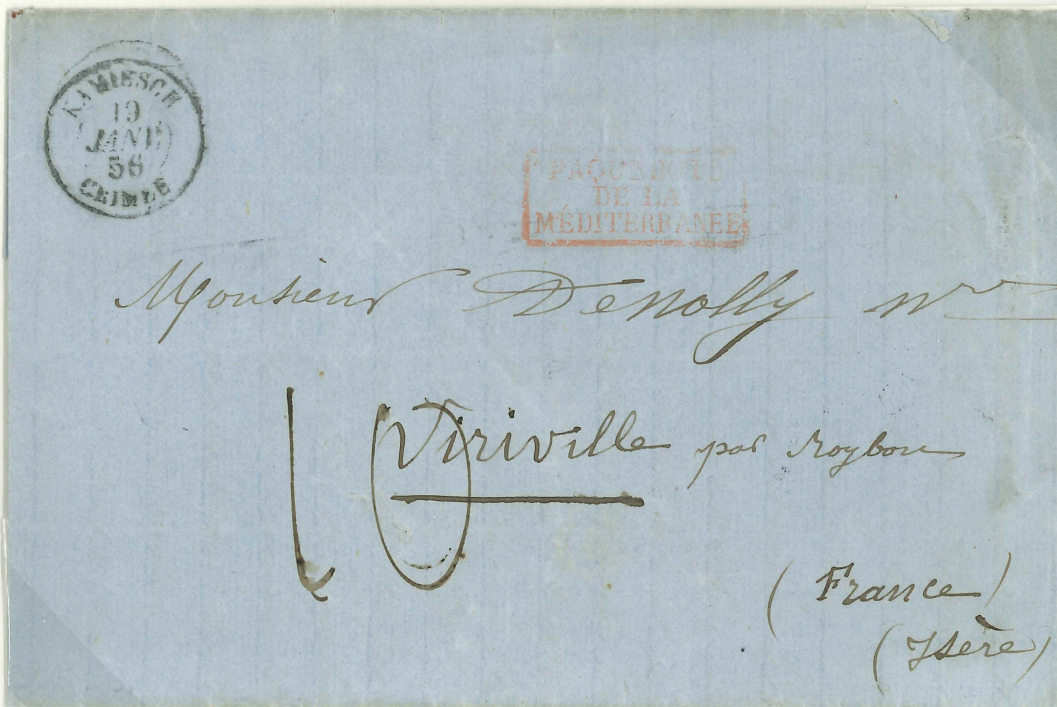 KAMIESCH
19
JANV
56
CRIMÉE
PAQUEBOTS
DE LA
MÉDITERRANÉE
Monsieur Denolly
10
Viriville par roybon
(France)
(Isère)